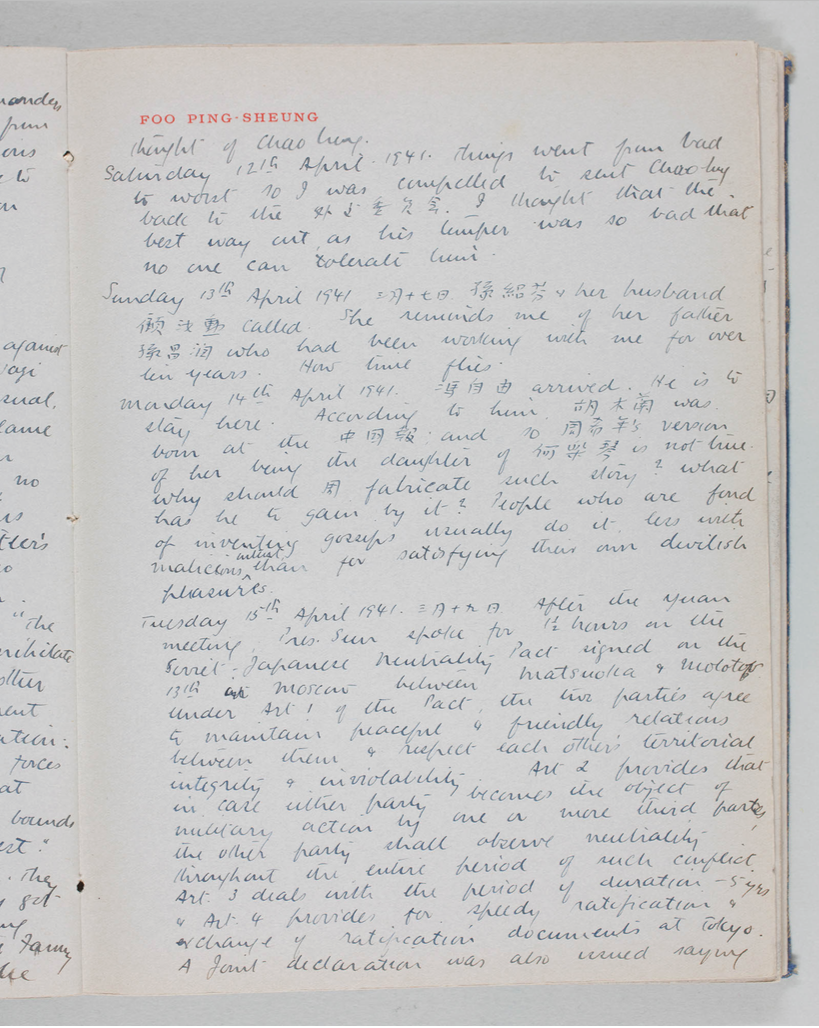 manders
from
ons
e to
n
against
sual,
lame
r
no
us
tler's
o
"The
nnihilate
other
ent
ation:
forces
at
bounds
est."
. They
s got
ng
Fanny
the
FOO PING-SHEUNG
thought of Chao heng.
Saturday 12th April 1941. Things went from bad
to worst so I was compelled to sent Chao-heng
back to the 外交委員會. I thought that the
best way out, as his temper was so bad that
no one can tolerate him.
Sunday 13th April 1941 三月十七日 孫紹芬 & her husband
顧 called. She reminds me of her father
孫昌潤 who had been working with me for over
ten years. How time flies.
Monday 14th April 1941. 馮自由 arrived. He is to
stay here. According to him, 胡木蘭 was
born at the 中国報 and so 周 's version
of her being the daughter of 何 琴 is not true.
Why should 周 fabricate such story? What
has he to gain by it? People who are fond
of inventing gossips usually do it less with
malicious intent than for satisfying their own devilish
pleasures.
Tuesday 15th April 1941. 三月十九日. After the Yuan
meeting, Pres. Sun spoke for 1½ hours on the
Soviet-Japanese Neutrality Pact signed on the
13th at Moscow between Matsuoka & Molotov
under Art 1 of the Pact, the two parties agree
to maintain peaceful & friendly relations
between them & respect each other's territorial
integrity & inviolability. Art 2 provides that
in case either party becomes the object of
military action by one or more third parties,
the other party shall observe neutrality
throughout the entire period of such conflict.
Art. 3 deals with the period of duration - 5 yrs
& Art. 4 provides for speedy ratification &
exchange of ratification documents at Tokyo.
A Joint declaration was also issued saying